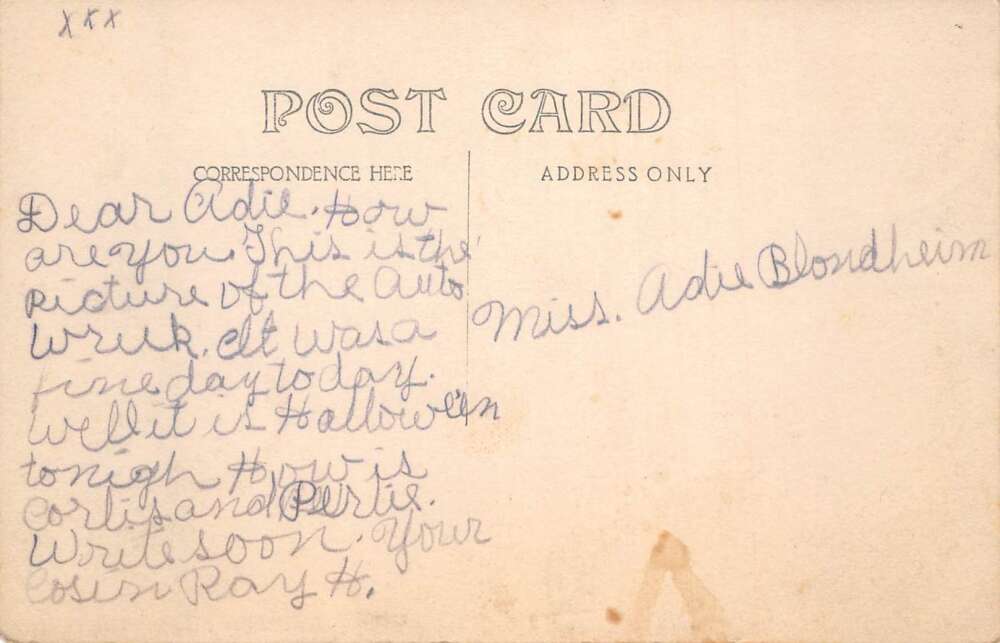 xxx
POST CARD
CORRESPONDENCE HERE
ADDRESS ONLY
Dear Adie. How
are you. This is the
picture of the Auto
Wreck. It was a
fine day today.
Well it is Hallowe'en
tonigh How is
Corlis and Pertie.
Write soon. Your
Cosin Ray H.
Miss. Adie Blondheim